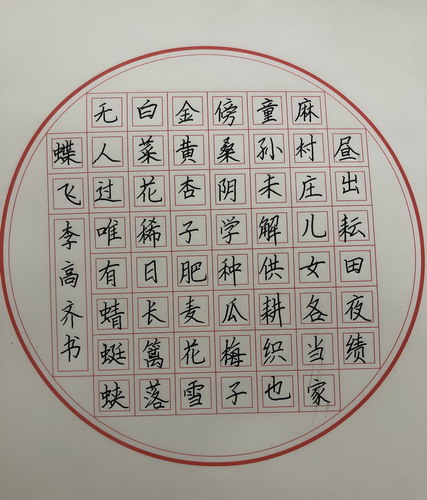 昼出耘田夜绩
麻村庄儿女各当家
童孙未解供耕织也
傍桑阴学种瓜梅子
金黄杏子肥麦花雪
白菜花稀日长篱落
无人过唯有蜻蜓蛱
蝶飞
李高齐书